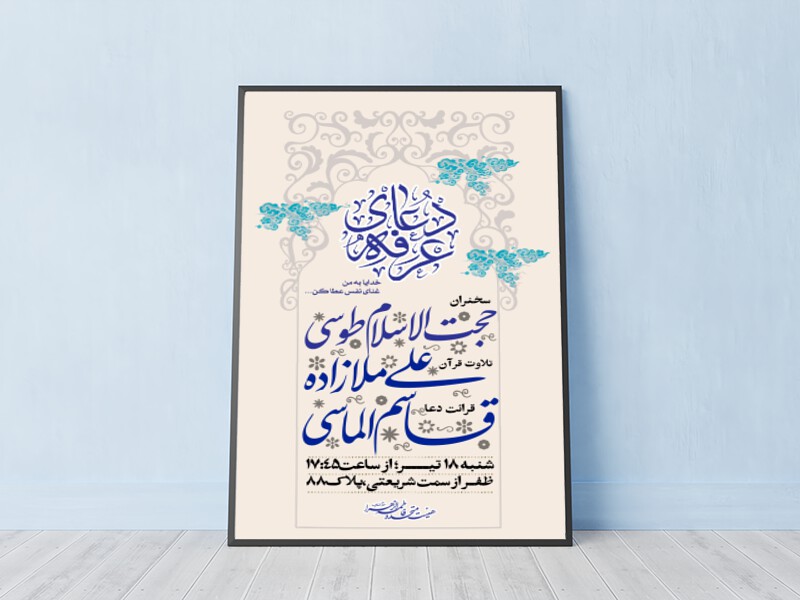 دعای
عرفه
خدایا به من
غنای نفس عطا کن...
سخنران
حجت الاسلام طوسی
تلاوت قرآن
علی ملازاده
قرائت دعا
قاسم الماسی
شنبه ۱۸ تیر؛ از ساعت ۱۷:۴۵
ظفر از سمت شریعتی، پلاک ۸۸